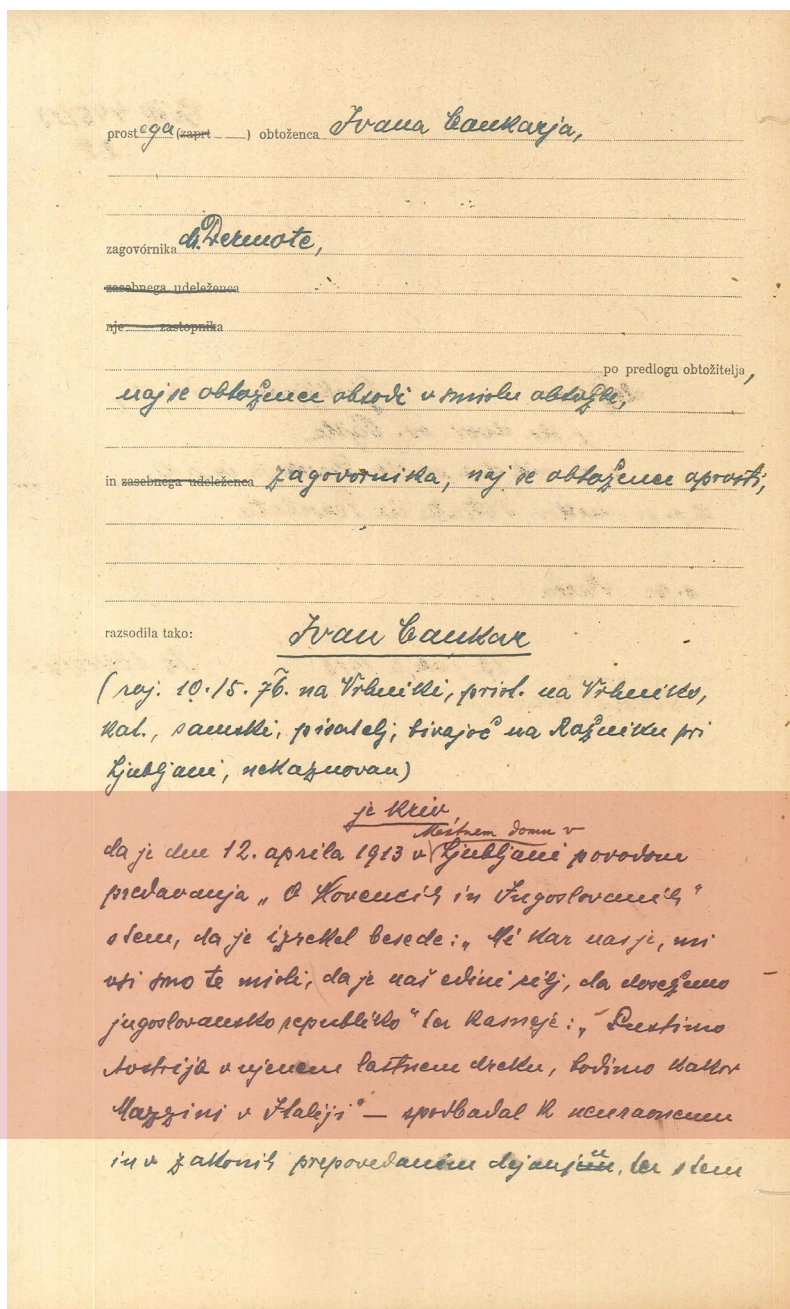 prostega (zaprt ) obtoženca Ivana Cankarja,
zagovórnika dr. Dermote,
zasebnega udeleženca
nje zastopnika
po predlogu obtožitelja,
naj se obtoženec obsodi v smislu obtožbe,
in zasebnega udeleženca zagovornika, naj se obtoženec oprosti,
razsodila tako: Ivan Cankar
(roj. 10./5. 76. na Vrhniki, prist. na Vrhniko,
kat., samski, pisatelj, bivajoč na Rožniku pri
Ljubljani, nekaznovan)
je kriv
Mestnem domu v
da je dne 12. aprila 1913 v Ljubljani povodom
predavanja „O Slovencih in Jugoslovanih“
s tem, da je izrekel besede: „Mi kar nas je, mi
vsi smo te misli, da je naš edini cilj, da dosežemo
jugoslovansko republiko“ ter kasneje: „Pustimo
Avstrijo v njenem lastnem dreku, bodimo kakor
Mazzini v Italiji“ — spodbadal k nenravnemu
in v zakonih prepovedanim dejanjem, ter s tem